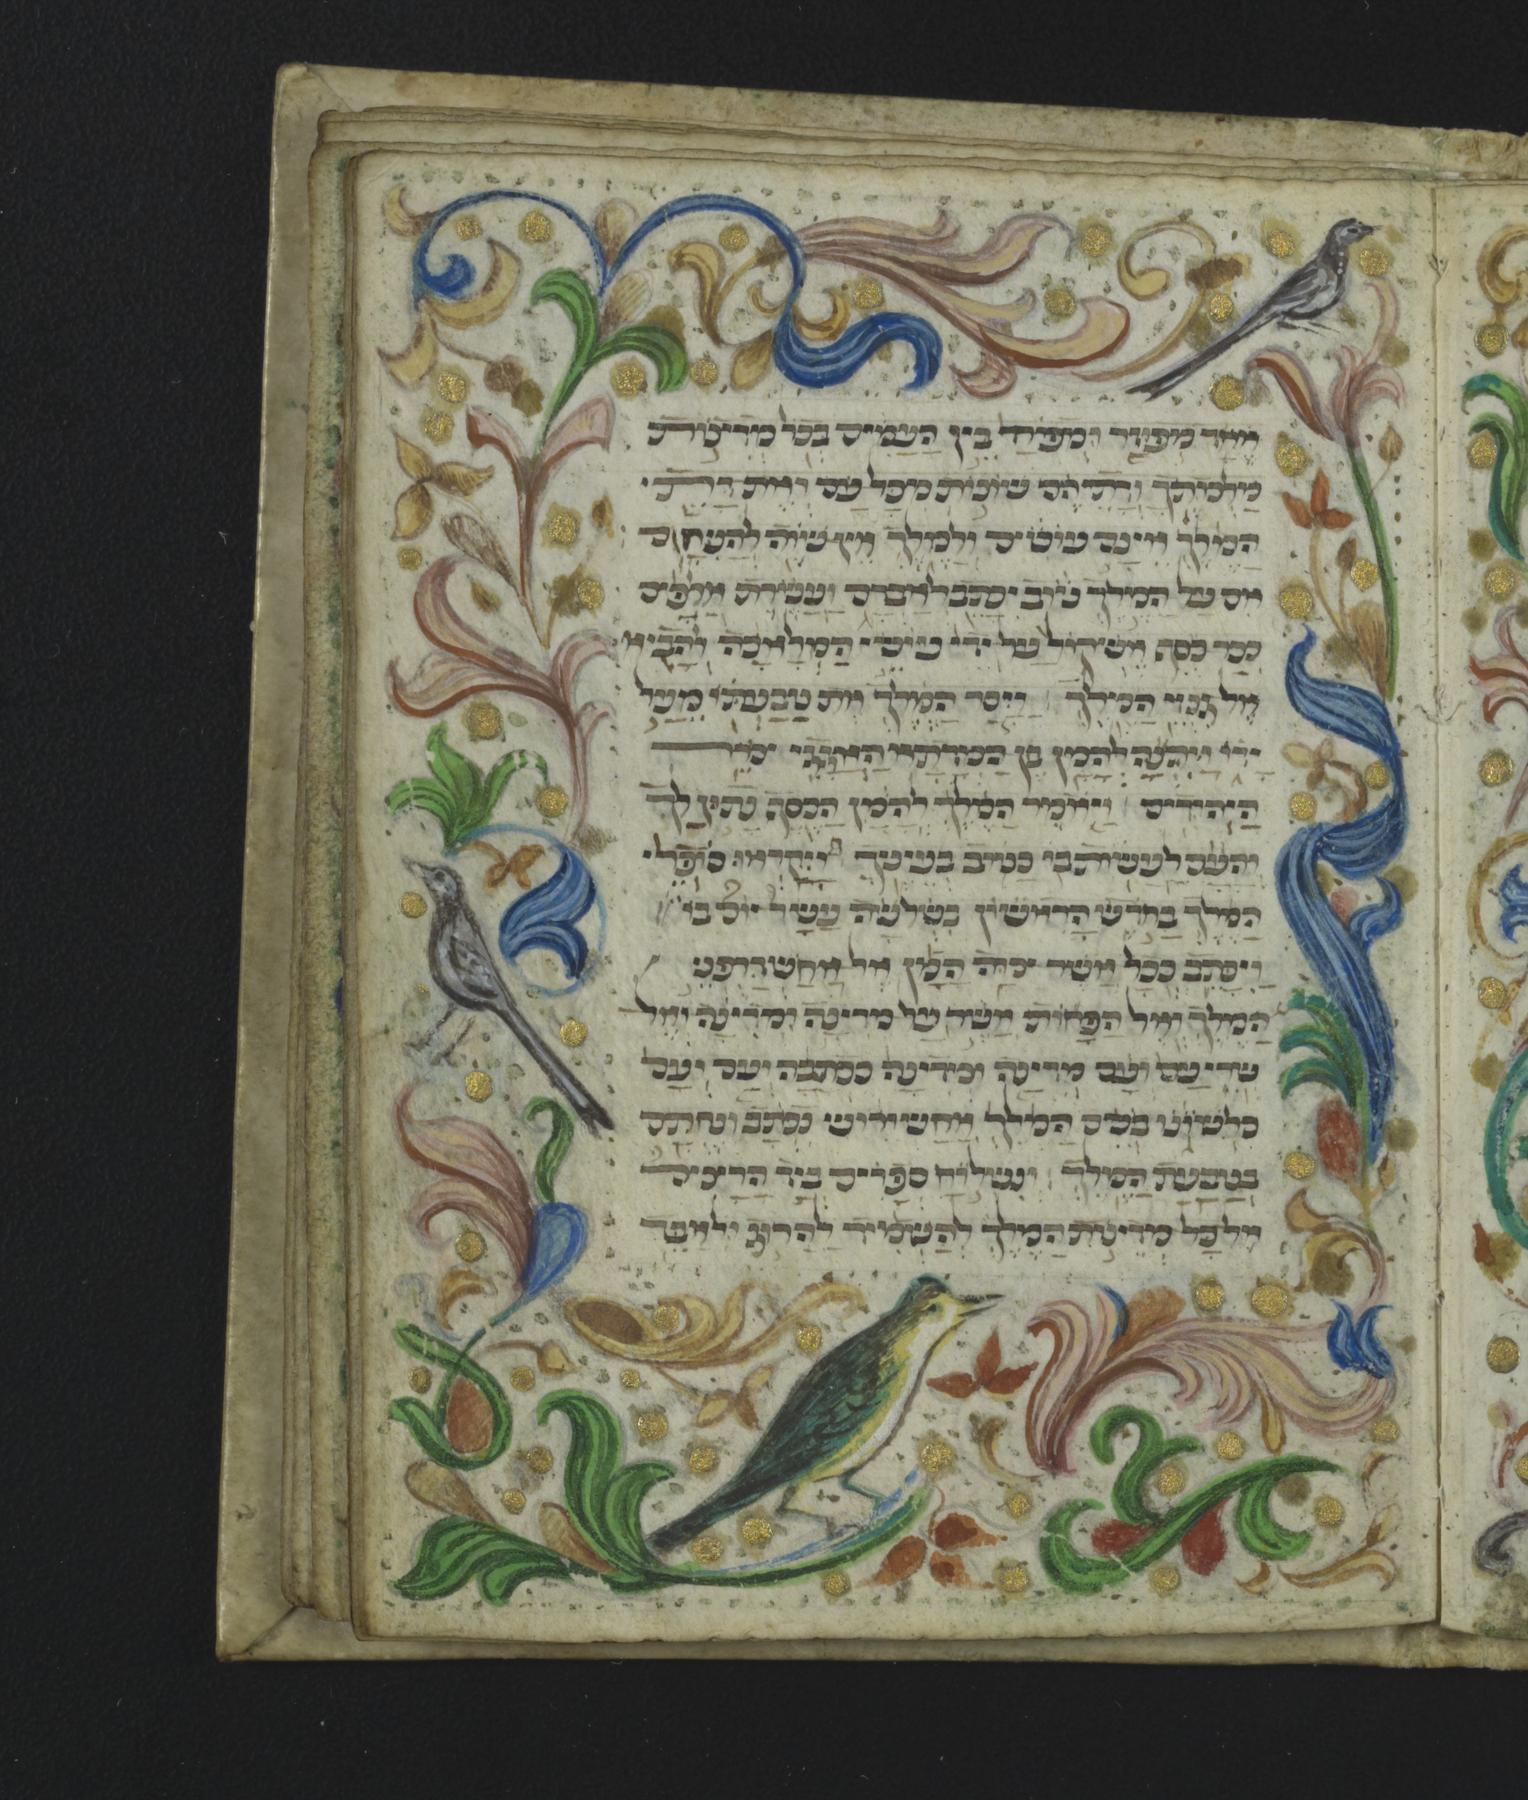 אחד מפוזר ומפורד בין העמים בכל מדינות
מלכותך ודתיהם שונות מכל עם ואת דתי
המלך אינם עושים ולמלך אין שוה להניחם
אם על המלך טוב יכתב לאבדם ועשרת אלפים
ככר כסף אשקול על ידי עושי המלאכה להביא
אל גנזי המלך ויסר המלך את טבעתו מעל
ידו ויתנה להמן בן המדתא האגגי צורר
היהודים ויאמר המלך להמן הכסף נתון לך
והעם לעשות בו כטוב בעיניך ויקראו סופרי
המלך בחדש הראשון בשלשה עשר יום בו
ויכתב ככל אשר צוה המן אל אחשדרפני
המלך ואל הפחות אשר על מדינה ומדינה ואל
שרי עם ועם מדינה ומדינה ככתבה ועם ועם
כלשונו בשם המלך אחשורוש נכתב ונחתם
בטבעת המלך ונשלוח ספרים ביד הרצים
אל כל מדינות המלך להשמיד להרוג ולאבד